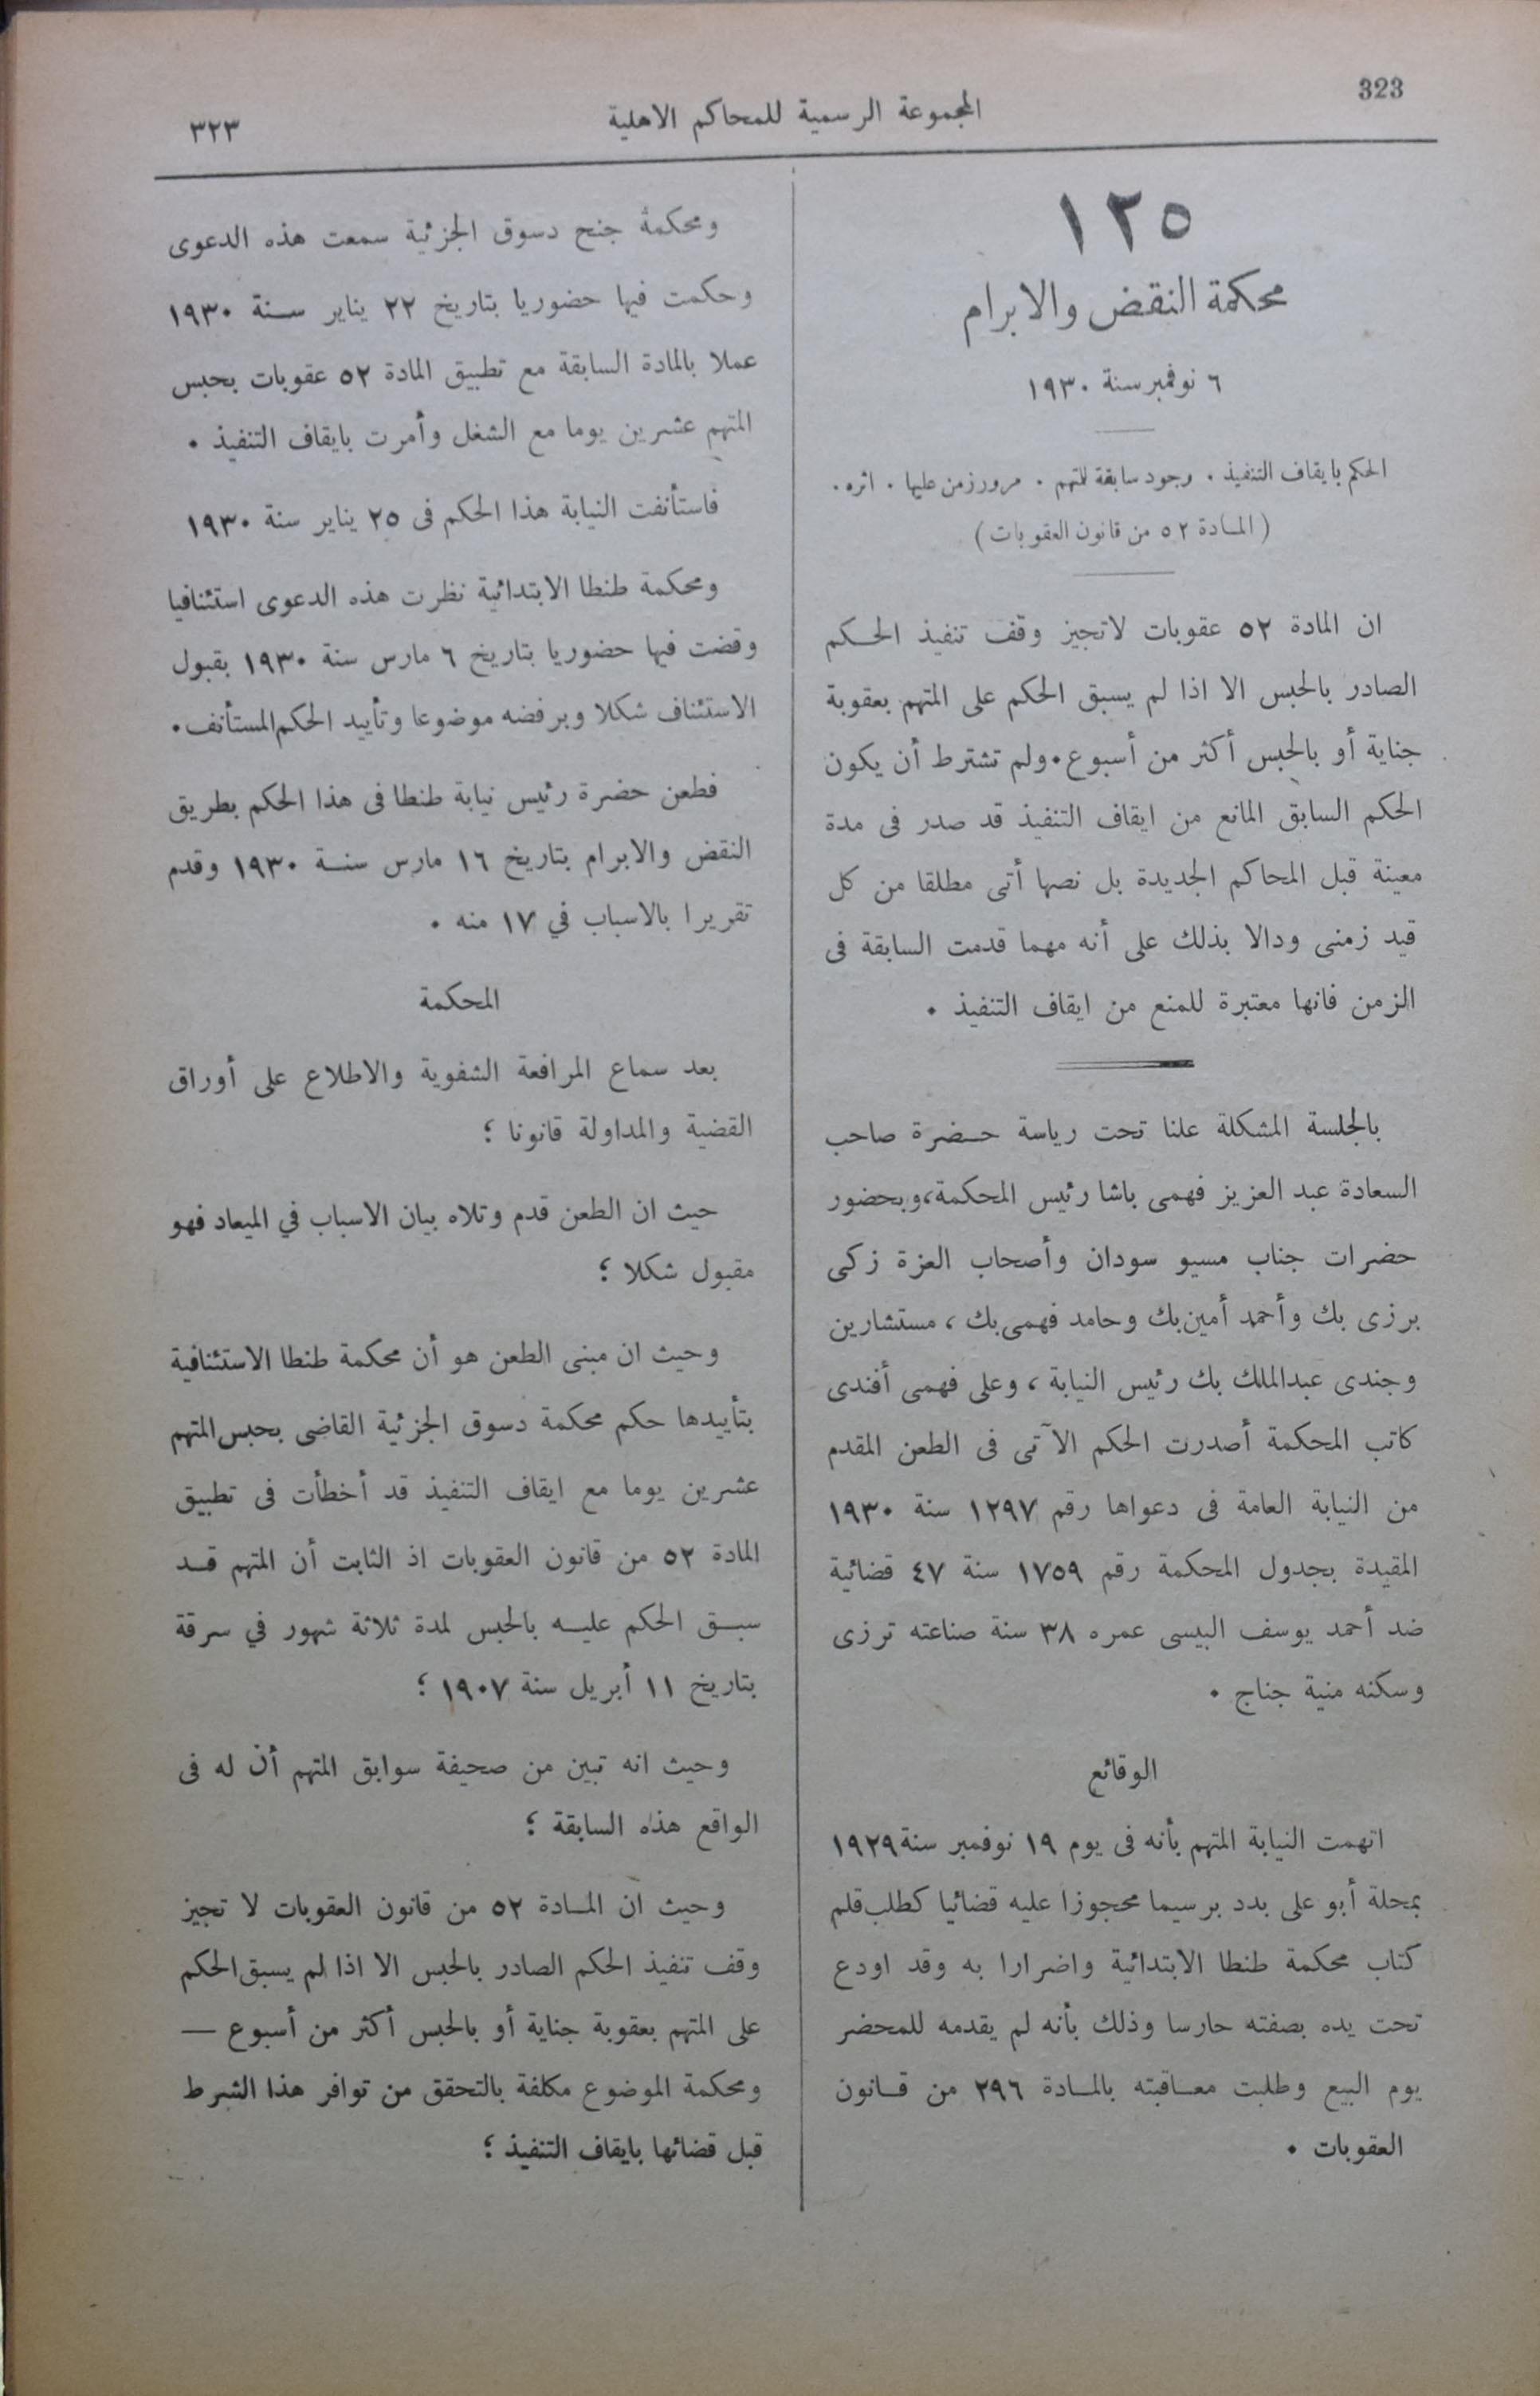 323
المجموعة الرسمية للمحاكم الاهلية
٣٢٣
١٢٥
محكمة النقض والابرام
٦ نوفمبر سنة ١٩٣٠
الحكم بايقاف التنفيذ . وجود سابقة للمتهم . مرور زمن عليها . اثره .
( المادة ٥٢ من قانون العقوبات )
ان المادة ٥٢ عقوبات لاتجيز وقف تنفيذ الحكم
الصادر بالحبس الا اذا لم يسبق الحكم على المتهم بعقوبة
جناية أو بالحبس أكثر من أسبوع . ولم تشترط أن يكون
الحكم السابق المانع من ايقاف التنفيذ قد صدر فى مدة
معينة قبل المحاكم الجديدة بل نصها أتى مطلقا من كل
قيد زمنى ودالا بذلك على أنه مهما قدمت السابقة فى
الزمن فانها معتبرة للمنع من ايقاف التنفيذ .
بالجلسة المشكلة علنا تحت رياسة حضرة صاحب
السعادة عبد العزيز فهمى باشا رئيس المحكمة، وبحضور
حضرات جناب مسيو سودان وأصحاب العزة زكى
برزى بك وأحمد أمين بك وحامد فهمى بك ، مستشارين
وجندى عبدالملك بك رئيس النيابة ، وعلى فهمى أفندى
كاتب المحكمة أصدرت الحكم الآتى فى الطعن المقدم
من النيابة العامة فى دعواها رقم ١٢٩٧ سنة ١٩٣٠
المقيدة بجدول المحكمة رقم ١٧٥٩ سنة ٤٧ قضائية
ضد أحمد يوسف البيسى عمره ٣٨ سنة صناعته ترزى
وسكنه منية جناج .
الوقائع
اتهمت النيابة المتهم بأنه فى يوم ١٩ نوفمبر سنة ١٩٢٩
بمحلة أبو على بدد برسيما محجوزا عليه قضائيا كطلب قلم
كتاب محكمة طنطا الابتدائية واضرارا به وقد اودع
تحت يده بصفته حارسا وذلك بأنه لم يقدمه للمحضر
يوم البيع وطلبت معاقبته بالمادة ٢٩٦ من قانون
العقوبات .
ومحكمة جنح دسوق الجزئية سمعت هذه الدعوى
وحكمت فيها حضوريا بتاريخ ٢٢ يناير سنة ١٩٣٠
عملا بالمادة السابقة مع تطبيق المادة ٥٢ عقوبات بحبس
المتهم عشرين يوما مع الشغل وأمرت بايقاف التنفيذ .
فاستأنفت النيابة هذا الحكم فى ٢٥ يناير سنة ١٩٣٠
ومحكمة طنطا الابتدائية نظرت هذه الدعوى استئنافيا
وقضت فيها حضوريا بتاريخ ٦ مارس سنة ١٩٣٠ بقبول
الاستئناف شكلا وبرفضه موضوعا وتأييد الحكم المستأنف .
فطعن حضرة رئيس نيابة طنطا فى هذا الحكم بطريق
النقض والابرام بتاريخ ١٦ مارس سنة ١٩٣٠ وقدم
تقريرا بالاسباب في ١٧ منه .
المحكمة
بعد سماع المرافعة الشفوية والاطلاع على أوراق
القضية والمداولة قانونا ؛
حيث ان الطعن قدم وتلاه بيان الاسباب في الميعاد فهو
مقبول شكلا ؛
وحيث ان مبنى الطعن هو أن محكمة طنطا الاستئنافية
بتأييدها حكم محكمة دسوق الجزئية القاضى بحبس المتهم
عشرين يوما مع ايقاف التنفيذ قد أخطأت فى تطبيق
المادة ٥٢ من قانون العقوبات اذ الثابت أن المتهم قد
سبق الحكم عليه بالحبس لمدة ثلاثة شهور في سرقة
بتاريخ ١١ أبريل سنة ١٩٠٧ ؛
وحيث انه تبين من صحيفة سوابق المتهم أن له فى
الواقع هذه السابقة ؛
وحيث ان المادة ٥٢ من قانون العقوبات لا تجيز
وقف تنفيذ الحكم الصادر بالحبس الا اذا لم يسبق الحكم
على المتهم بعقوبة جناية أو بالحبس أكثر من أسبوع —
ومحكمة الموضوع مكلفة بالتحقق من توافر هذا الشرط
قبل قضائها بايقاف التنفيذ ؛